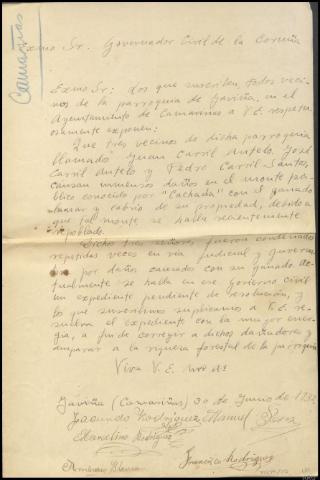 Camariñas
Exmo Sr. Governador Civil de la Coruña
Exmo Sr: Los que suscriben, todos veci-
nos de la parroquia de Gaviña, en el
Ayuntamiento de Camariñas a V.E. respetu-
osamente exponen:
Que tres vecinos de dicha parroquia
llamado Juan Carril Antelo, José
Carril Antelo y Pedro Carril Santos,
causan inmensos daños en el monte pú-
blico conocido por "Cachada" con el ganado
lanar y cabrio de su propiedad, debido a
que tal monte se halla recientemente
repoblado.
Dicho tres señores, fueron condenados
repetidas veces en vía judicial y guverna
por daños causados con su ganado ac-
tualmente se halla en ese Govierno civil
un expediente pendiente de resolución, y
lo que suscribimos suplicamos a V.E. re-
suelva el expediente con la mayor ener-
gia, a fin de corregir a dichos dañadores y
amparar a la riqueza forestal de la parroquia
Viva V.E. 
Gaviña (Camariñas) 30 de Junio de
Facundo Rodriguez Manuel
Marcelino Rodriguez
Francisco Rodriguez